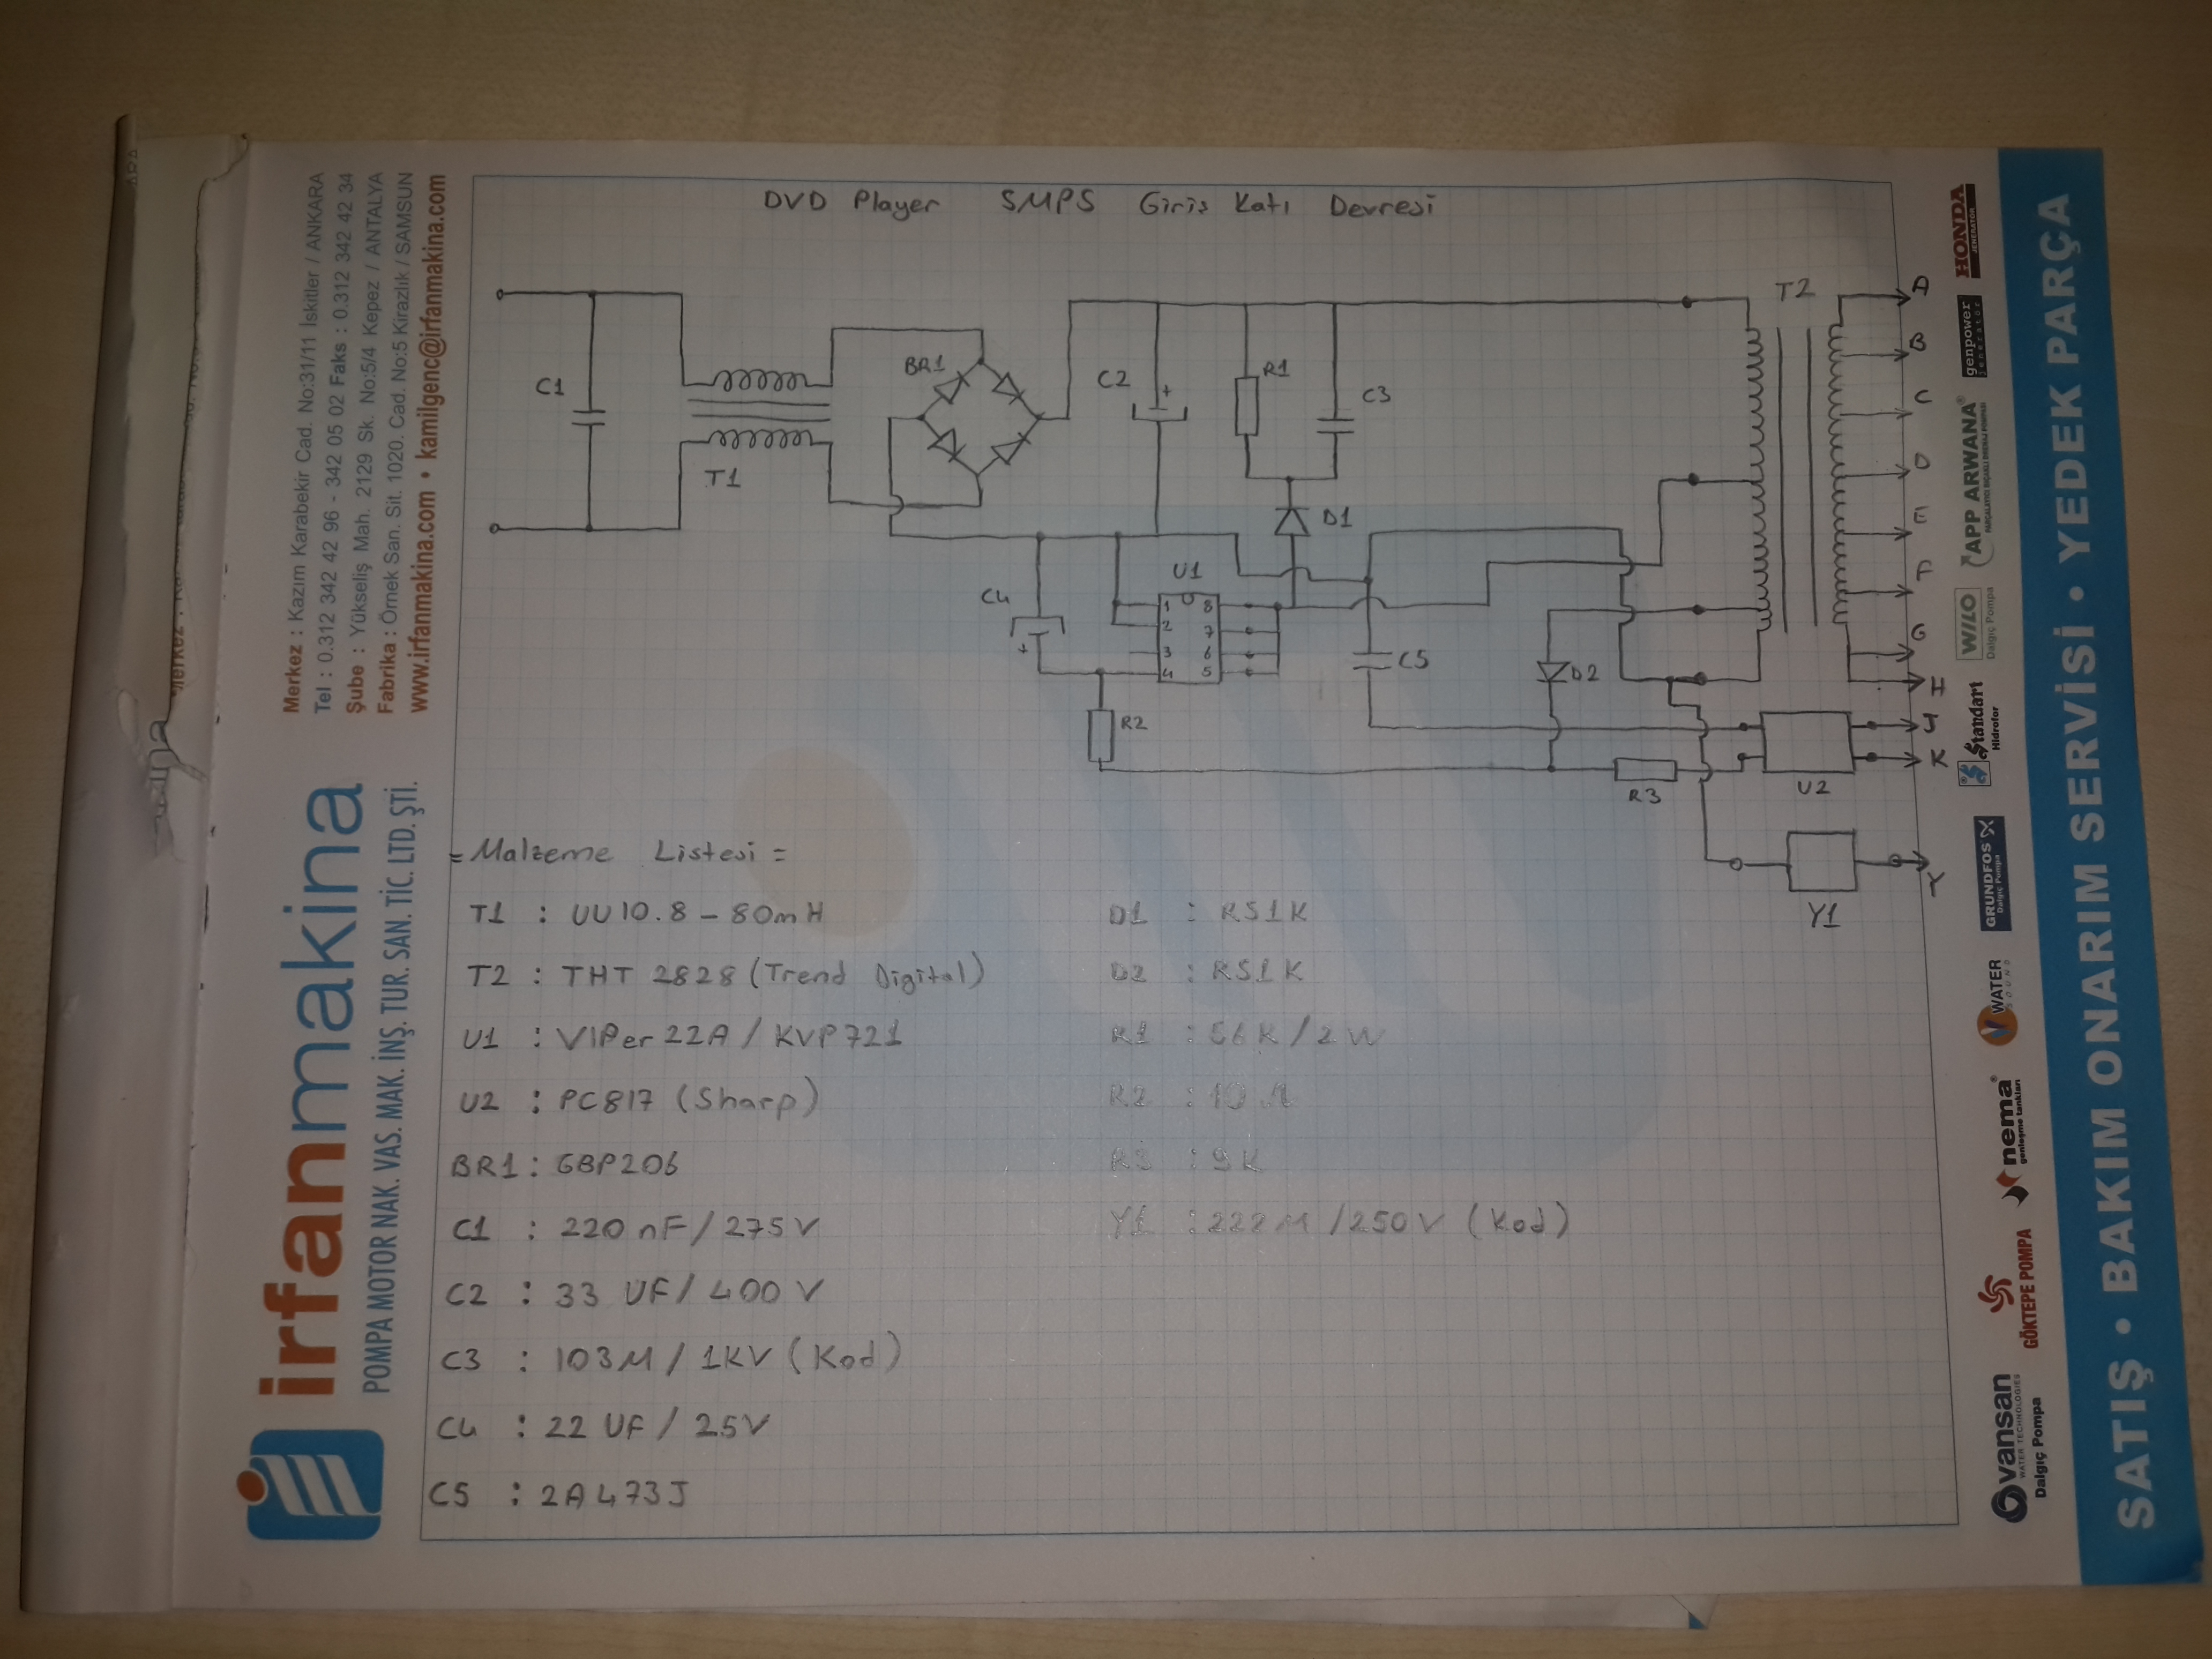 DVD Player SMPS Giriş Katı Devresi
C1
T1
BR1
C2
+
R1
C3
D1
C4
+
U1
1
2
3
4
8
7
6
5
R2
C5
D2
R3
U2
Y1
T2
B
C
D
E
G
I
K
= Malzeme Listesi =
T1 : UU10.8 - 80mH
T2 : THT 2828 (Trend Digital)
U1 : VIPer22A / KVP721
U2 : PC817 (Sharp)
BR1 : GBP206
C1 : 220 nF / 275V
C2 : 33 UF / 400V
C3 : 103M / 1KV (Kod)
C4 : 22 UF / 25V
C5 : 2A473J
D1 : RS1K
D2 : RS1K
R1 : 56K / 2W
R2 : 10 Ω
R3 : 9K
Y1 : 222M / 250V (Kod)
Merkez : Kazım Karabekir Cad. No:31/11 İskitler / ANKARA
Tel : 0.312 342 42 96 - 342 05 02 Faks : 0.312 342 42 34
Şube : Yükseliş Mah. 2129 Sk. No:5/4 Kepez / ANTALYA
Fabrika : Örnek San. Sit. 1020. Cad. No:5 Kirazlık / SAMSUN
www.irfanmakina.com • kamilgenc@irfanmakina.com
irfanmakina
POMPA MOTOR NAK. VAS. MAK. İNŞ. TUR. SAN. TİC. LTD. ŞTİ.
vansan
WATER TECHNOLOGIES
Dalgıç Pompa
GÖKTEPE POMPA
nema
genleşme tankları
WATER
SOUND
GRUNDFOS
Dalgıç Pompa
Standart
Hidrofor
WILO
Dalgıç Pompa
APP ARWANA
genpower
jeneratör
HONDA
JENERATÖR
SATIŞ • BAKIM ONARIM SERVİSİ • YEDEK PARÇA